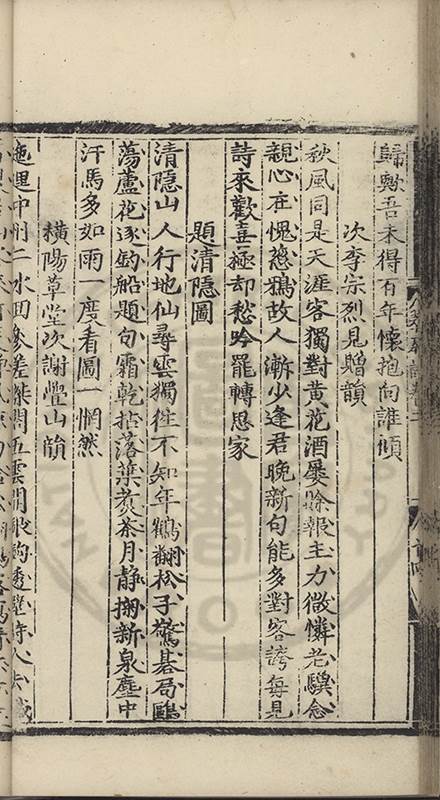 歸歟吾未得百年懷抱向誰傾
次李宗烈見贈韻
秋風同是天涯客獨對黃花酒屢賒報主力微憐老驥念
親心在愧慈鴉故人漸少逢君晚新句能多對客誇每見
詩來歡喜極却愁吟罷轉思家
題清隱圖
清隱山人行地仙尋雲獨往不知年鶴翻松子驚碁局鷗
蕩蘆花逐釣船題句霜乾拈落葉煑茶月静掬新泉塵中
汗馬多如雨一度看圖一惘然
橫陽草堂次謝疊山韻
迤邐中州二水回參差